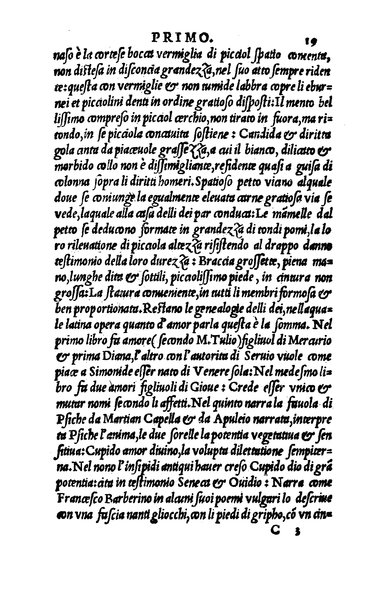 PRIMO. 19
naso è la cortese bocca vermiglia di picciol spatio contenta,
non distesa in disconcia grandezza, nel suo atto sempre riden
te: questa con vermiglie & non tumide labbra copre li ebur-
nei et picciolini denti in ordine gratioso disposti: Il mento bel
lissimo compreso in picciol cerchio, non tirato in fuora, ma ri-
tondo, in se picciola concavita sostiene: Candida & diritta
gola anta da piaceuole grassezza, a cui il bianco, dilicato &
morbido collo non è dissimigliante, residente quasi a guisa di
colonna sopra li diritti homeri. Spatioso petto viano alquale
doue se coniunge la egualmente eleuata carne gratiosa via se
vede, laquale alla casa delli dei par conduca: Le mamelle dal
petto se deducono formate in grandezza di tondi pomi, la lo
ro rileuatione di picciola altezza risistendo al drappo danno
testimonio della loro durezza: Braccia grossette, piena ma-
no, lunghe dita & sottili, picciolissimo piede, in cintura non
grossa: La statura conueniente, in tutti li membri formosa &
ben proportionata. Restano le genealogie delli dei, nellaqua
le latina opera quanto d'amor parla questa è la somma. Nel
primo libro fa amore (secondo M. Tulio) figliuol di Mercurio
& prima Diana, l'altro con l'autorita di Seruio vuole come
piace a Simonide esser nato di Venere sola: Nel medesmo li-
bro fa due amori figliuoli di Gioue: Crede esser vnico &
mutar nomi secondo li affetti. Nel quinto narra la fauola di
Psiche da Martian Capella & da Apuleio narrata, interpre
ta Psiche l'anima, le due sorelle la potentia vegetatiua & sen
sitiua: Cupido amor diuino, la volupta dilettatione sempiter-
na. Nel nono l'insipidi antiqui hauer creso Cupido dio di grã
potentia: cita in testimonio Seneca & Ouidio: Narra come
Francesco Barberino in alcuni suoi poemi vulgari lo descriue
con vna fascia nanti gliocchi, con li piedi di gripho, cõ vn cin-
C 3